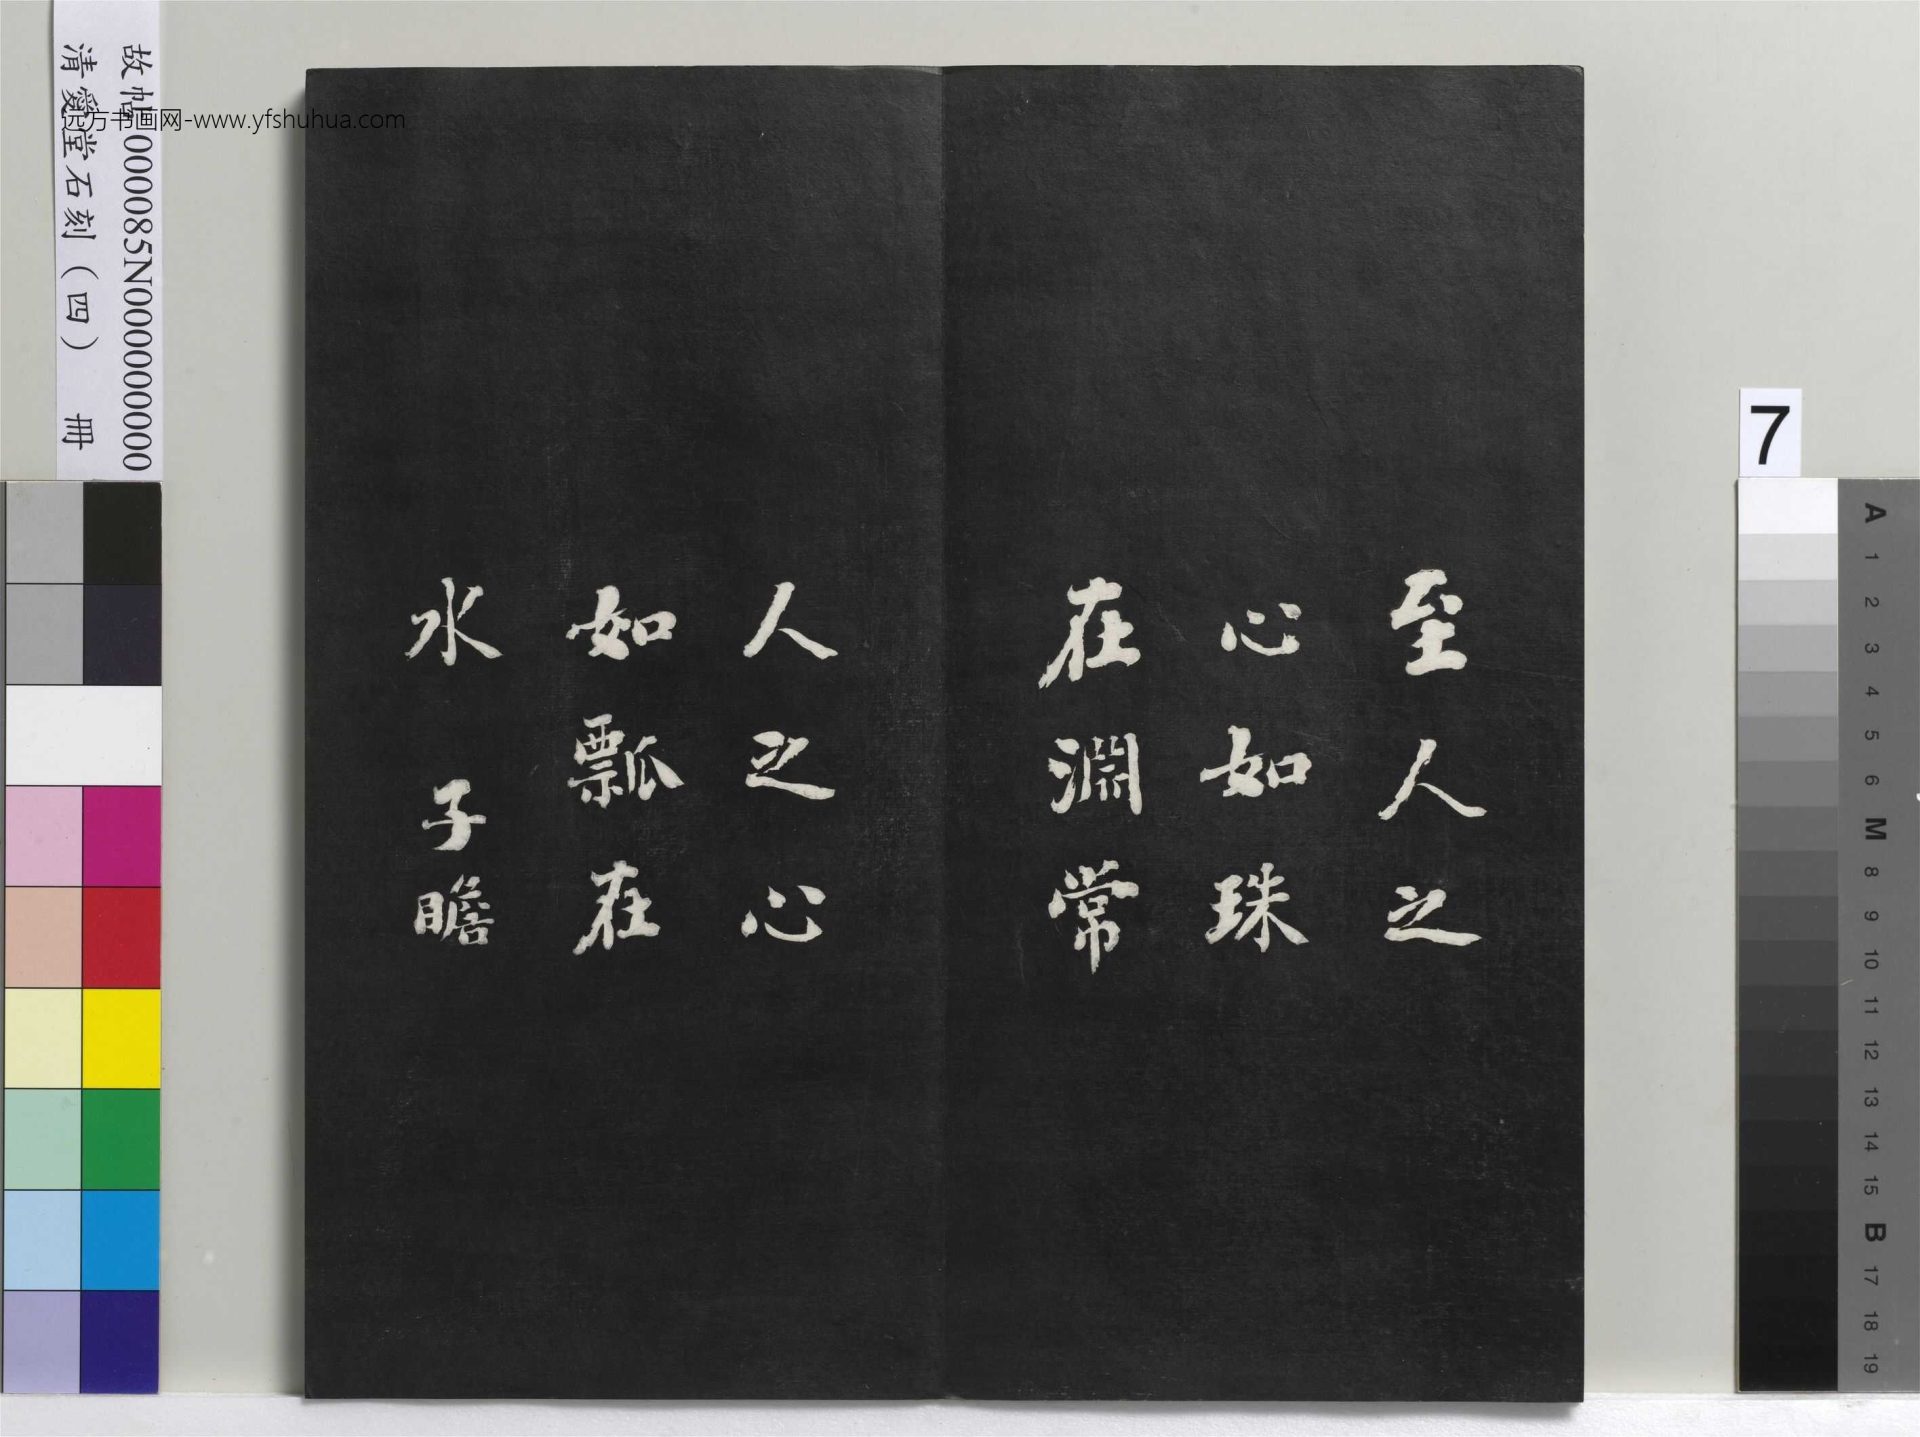 至人之
心如珠
在淵常
人之心
如瓢在
水 子瞻
故帖000085N000000000
清愛堂石刻（四） 冊
远方书画网-www.yfshuhua.com
7
A 1 2 3 4 5 6 M 8 9 10 11 12 13 14 15 B 17 18 19